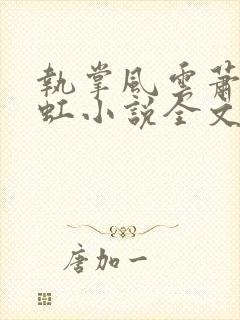 執掌風雲蕭
虹小說全文
唐加一